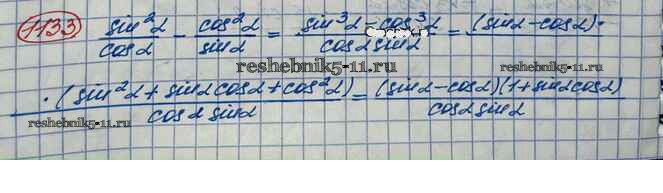 1133 sin²α/cosα - cos²α/sinα = sin³α - cos³α/cosα sinα = (sinα - cosα)·
reshebnik5-11.ru
·(sin²α + sinα cosα + cos²α)/cosα sinα = (sinα - cosα)(1 + sinα cosα)/cosα sinα
reshebnik5-11.ru